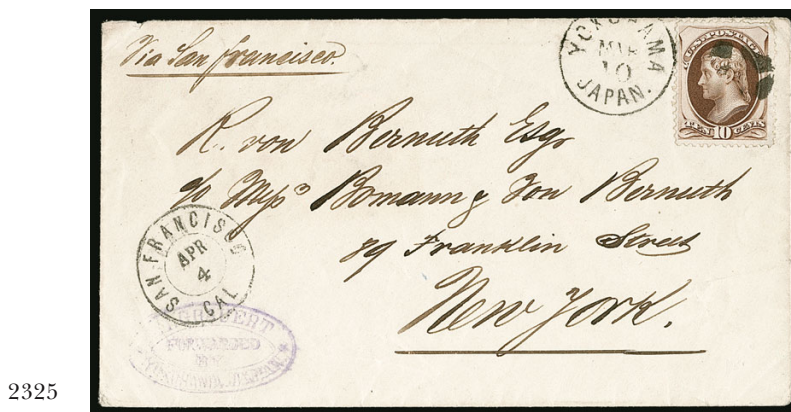 Via San Francisco.
YOKOHAMA
MAR
10
JAPAN.
TEN 10 CENTS
R. von Bernuth Esqr
c/o Messrs Bomann & Von Bernuth
89 Franklin Street
New York.
SAN FRANCISCO
APR
4
CAL
FORWARDED
BY
2325